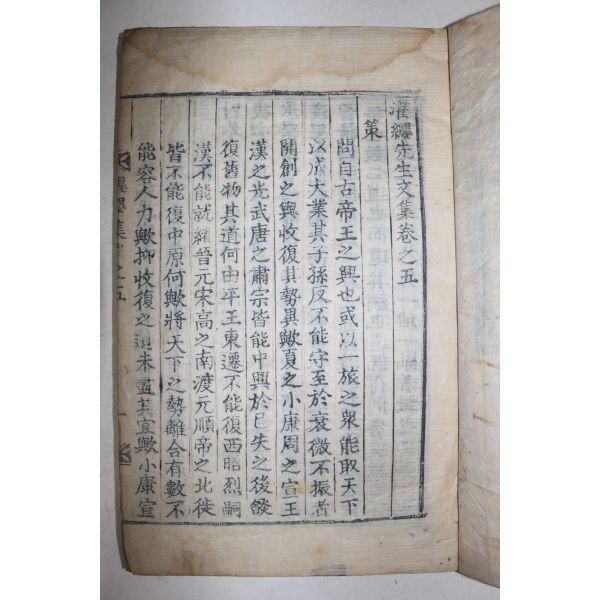 濯纓先生文集卷之五
策
問自古帝王之興也或以一旅之衆能取天下
以成大業其子孫反不能守至於衰微不振者
開創之與收復其勢異歟夏之小康周之宣王
漢之光武唐之肅宗皆能中興於已失之後餙
復舊物其道何由平王東遷不能復西昭烈嗣
漢不能就緖晉元宋高之南渡元順帝之北徙
皆不能復中原何歟將天下之勢離合有數不
能容人力歟抑收復之道未盡其宜歟小康宣
濯纓集卷之五
一